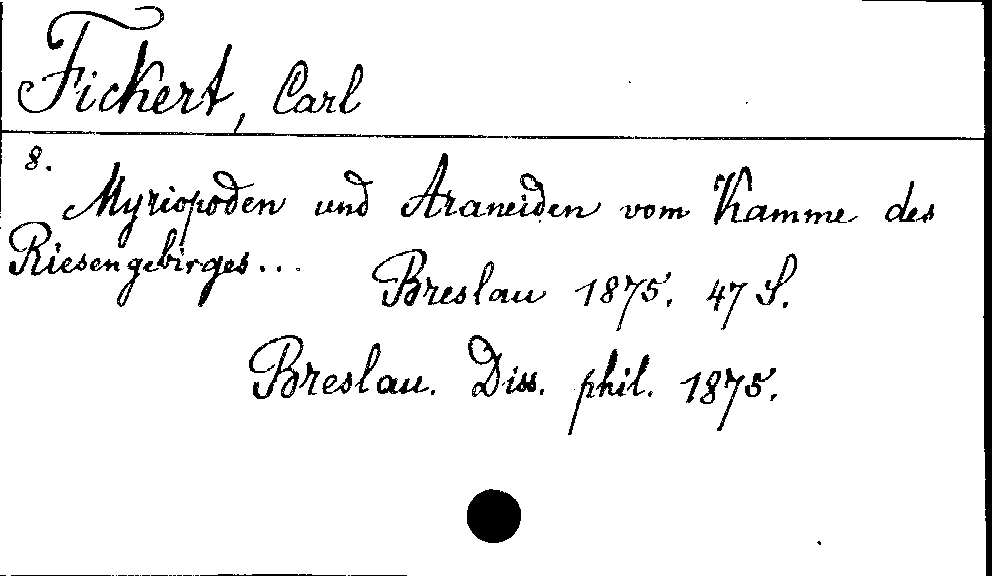 Fickert, Carl
8.
Myriopoden und Araneiden vom Kamme des
Riesengebirges...
Breslau 1875. 47 S.
Breslau. Diss. phil. 1875.